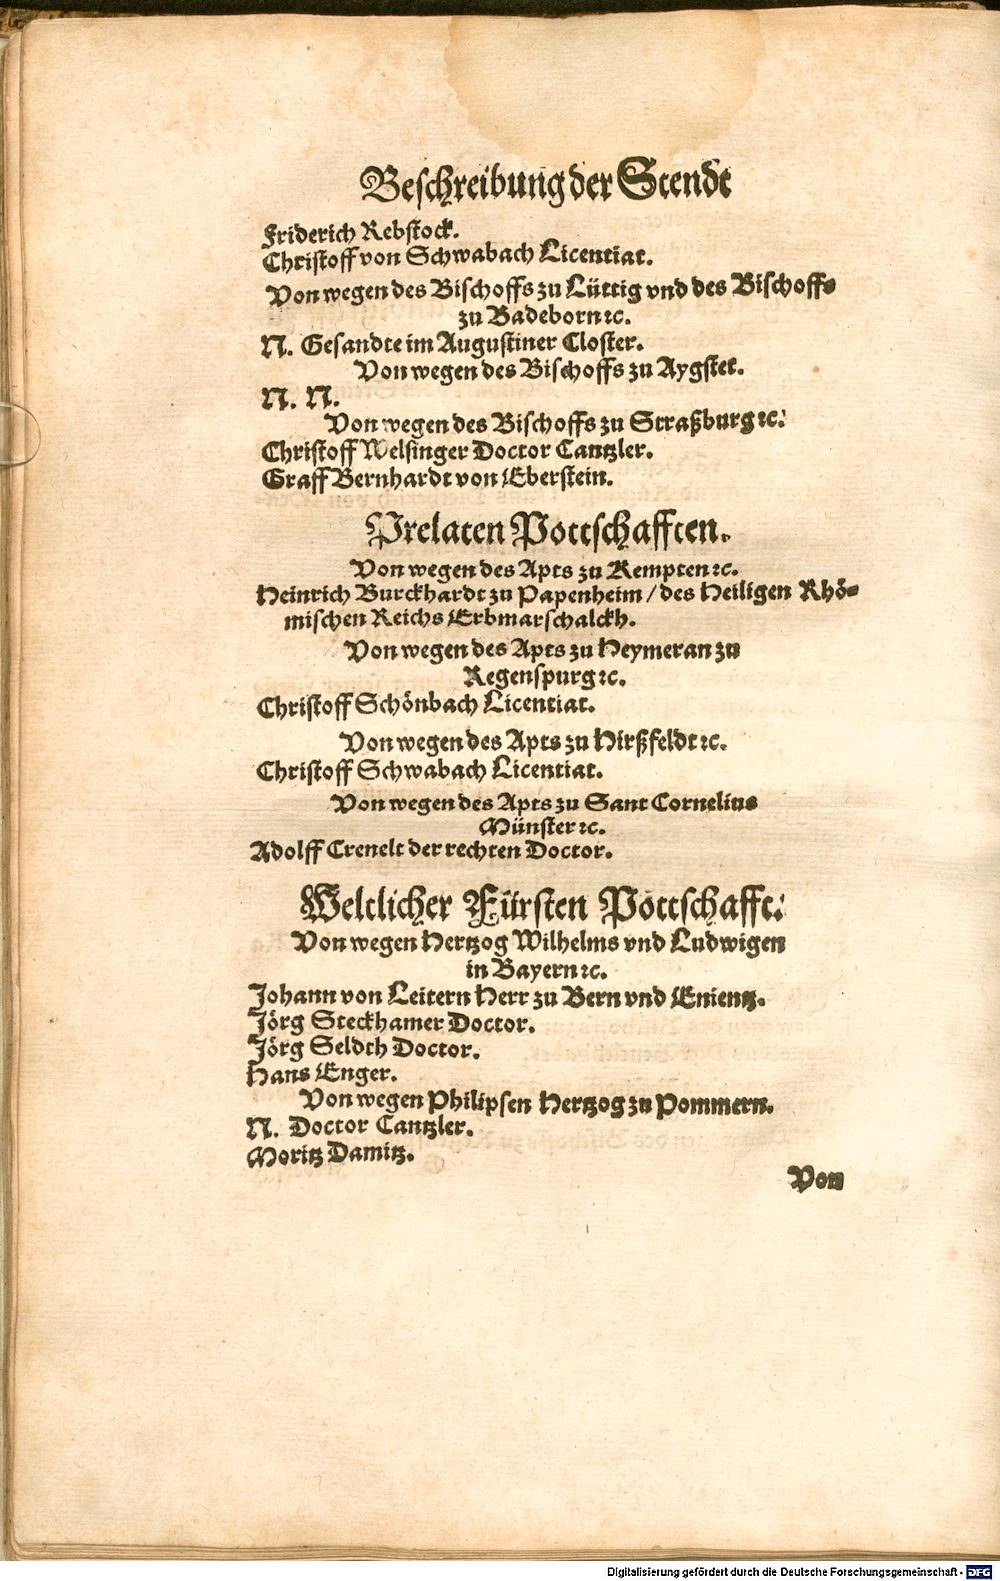 Beschreibung der Stende
Friderich Rebstock.
Christoff von Schwabach Licentiat.
Von wegen des Bischoffs zu Lüttig vnd des Bischoffs
zu Badeborn ꝛc.
N. Gesandte im Augustiner Closter.
Von wegen des Bischoffs zu Aygstet.
N. N.
Von wegen des Bischoffs zu Straßburg ꝛc.
Christoff Welsinger Doctor Cantzler.
Graff Bernhardt von Eberstein.
Prelaten Pottschafften.
Von wegen des Apts zu Kempten ꝛc.
Heinrich Burckhardt zu Papenheim / des Heiligen Rhö-
mischen Reichs Erbmarschalckh.
Von wegen des Apts zu Heymeran zu
Regenspurg ꝛc.
Christoff Schönbach Licentiat.
Von wegen des Apts zu Hirßfeldt ꝛc.
Christoff Schwabach Licentiat.
Von wegen des Apts zu Sant Cornelius
Münster ꝛc.
Adolff Crenelt der rechten Doctor.
Weltlicher Fürsten Pottschafft.
Von wegen Hertzog Wilhelms vnd Ludwigen
in Bayern ꝛc.
Johann von Leitern Herr zu Bern vnd Enientz.
Jörg Steckhamer Doctor.
Jörg Seldth Doctor.
Hans Enger.
Von wegen Philipsen Hertzog zu Pommern.
N. Doctor Cantzler.
Moritz Damitz.
Von
Digitalisierung gefördert durch die Deutsche Forschungsgemeinschaft - DFG